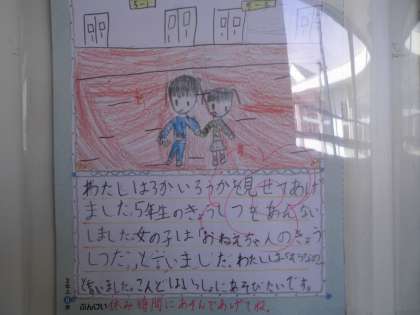 5-
わたしはろかいろうかを見せてあげ
ました。5年生のきょうしつをあんない
しました。女の子は「おねえちゃんのきょう
しつだ。」と言いました。わたしは「そうなの」
と言いました。こんどはいっしょにあそびたいです。
休み時間にあそんであげてね。